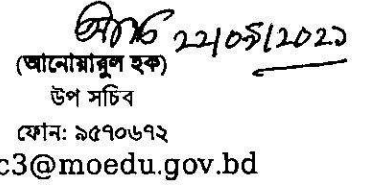 ২২/০৯/২০২১
(আনোয়ারুল হক)
উপ সচিব
ফোন: ৯৫৭০৬৭২
c3@moedu.gov.bd